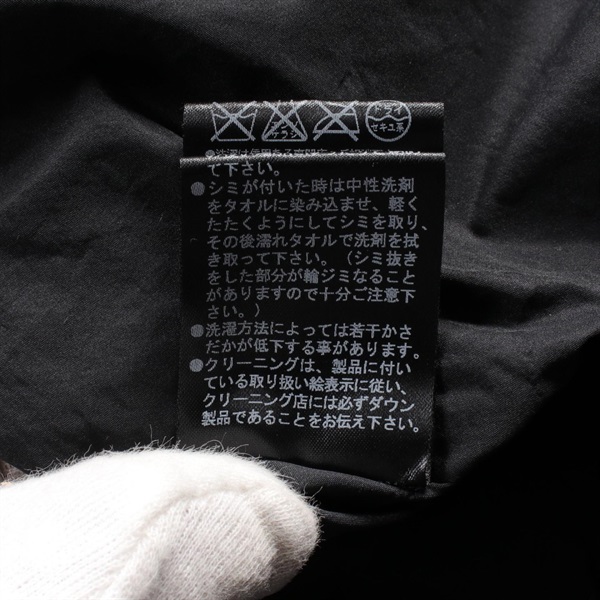 エンソサラシ
ドライ
セキユ系
て下さい。
●シミが付いた時は中性洗剤
をタオルに染み込ませ、軽く
たたくようにしてシミを取り、
その後濡れタオルで洗剤を拭
き取って下さい。（シミ抜き
をした部分が輪ジミなること
がありますので十分ご注意下
さい。）
●洗濯方法によっては若干かさ
だかが低下する事があります。
●クリーニングは、製品に付い
ている取り扱い絵表示に従い、
クリーニング店には必ずダウン
製品であることをお伝え下さい。